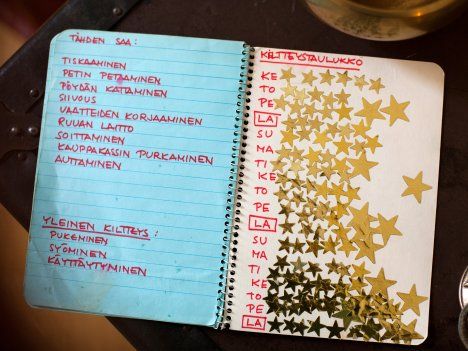 TÄHDEN SAA:
TISKAAMINEN
PETIN PETAAMINEN
PÖYDÄN KATTAMINEN
SIIVOUS
VAATTEIDEN KORJAAMINEN
RUUAN LAITTO
SOITTAMINEN
KAUPAKASSIN PURKAMINEN
AUTTAMINEN
YLEINEN KILTTEYS:
PUKEMINEN
SYÖMINEN
KÄYTTÄYTYMINEN
KILTTEYSTAULUKKO
KE
TO
PE
LA
SU
MA
TI
KE
TO
PE
LA
SU
MA
TI
KE
TO
PE
LA